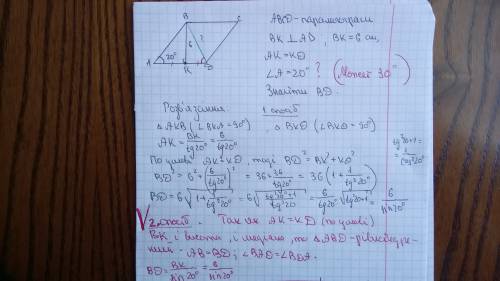 B C
6 ?
A 20° K D
ABCD - паралелограм
BK ⊥ AD, BK = 6 см,
AK = KD
∠A = 20° ? (Может 30°)
Знайти BD.
Розв'язання
1 спосіб
△ AKB (∠BKA = 90°) , △ BKD (∠BKD = 90°)
AK = BK/tg20° = 6/tg20°
По умові AK = KD, тоді BD² = BK² + KD²
BD² = 6² + (6/tg20°)² = 36 + 36/tg²20° = 36(1 + 1/tg²20°)
BD = 6√(1 + 1/tg²20°) = 6√((tg²20°+1)/tg²20°) = 6/tg20° √(tg²20°+1) = 6/sin20°
tg²20+1 = 1/cos²20°
2 спосіб. Так як AK = KD (по умові)
BK і висота, і медіана, то △ ABD - рівнобедре-
ний. AB = BD; ∠BAD = ∠BDA.
BD = BK/sin20° = 6/sin20°